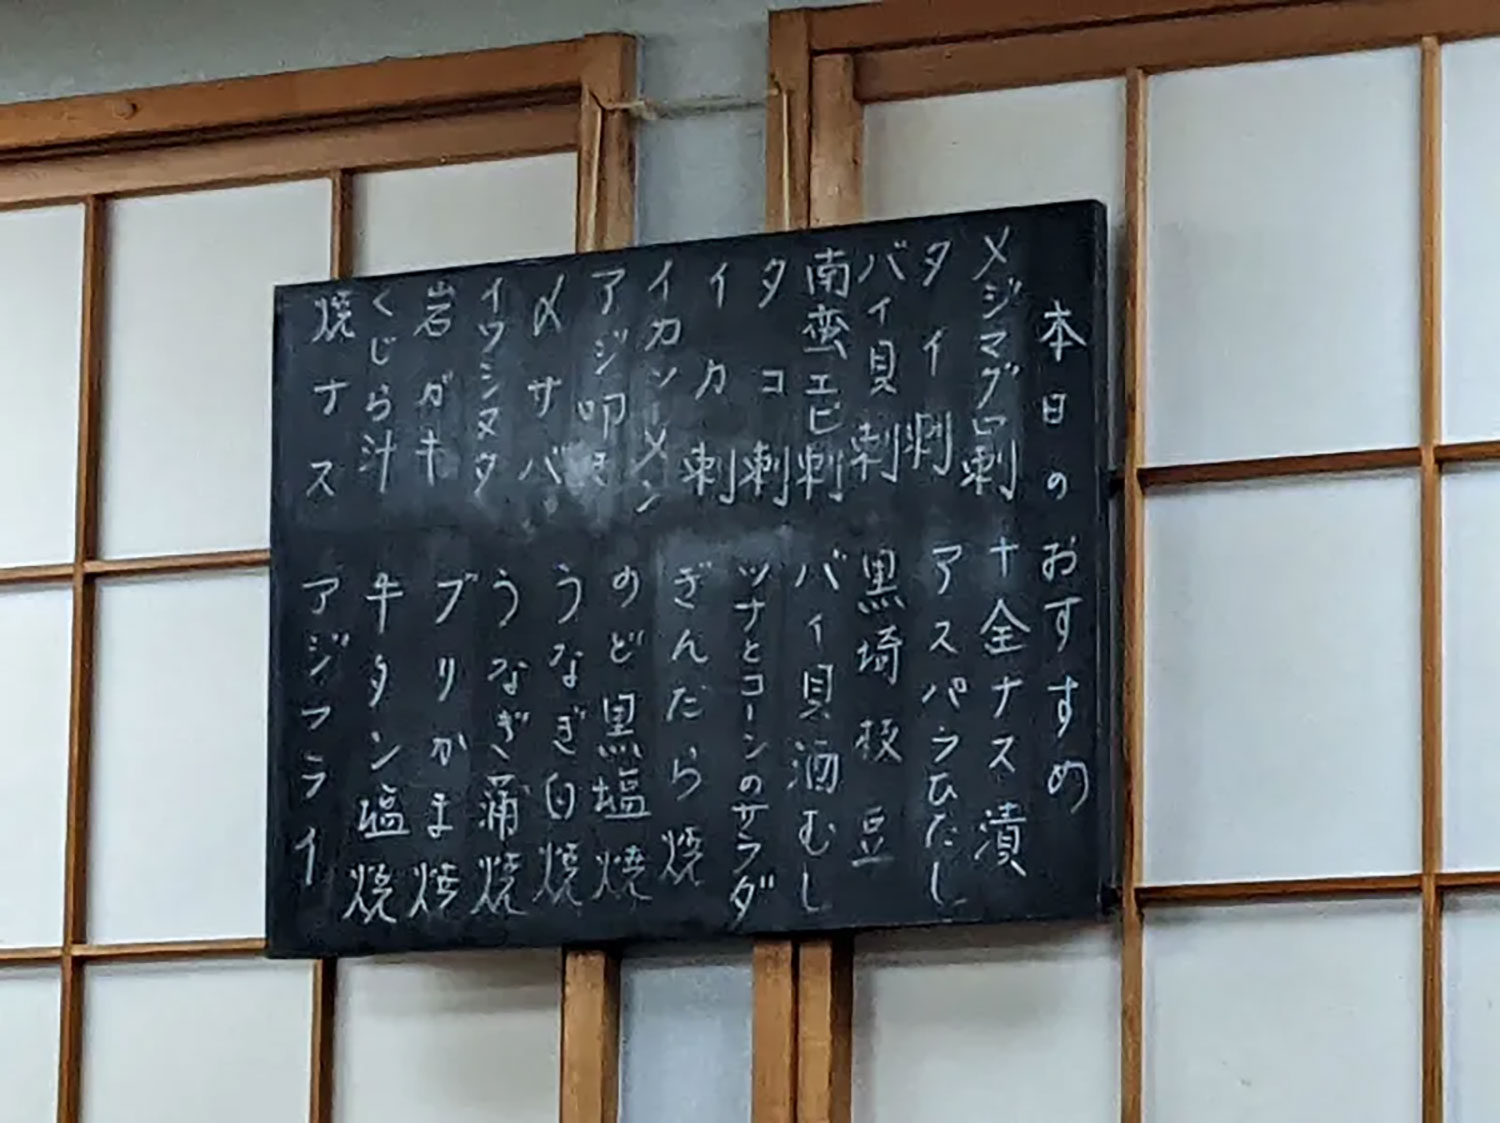 本日のおすすめ
メジマグロ刺
タイ刺
バイ貝刺
南蛮エビ刺
タコ刺
イカ刺
イカソーメン
アジ叩き
〆サバ
イワシヌタ
岩ガキ
くじら汁
焼ナス
十全ナス漬
アスパラひたし
黒埼枝豆
バイ貝酒むし
ツナとコーンのサラダ
ぎんだら焼
のど黒塩焼
うなぎ白焼
うなぎ蒲焼
ブリかま焼
牛タン塩焼
アジフライ